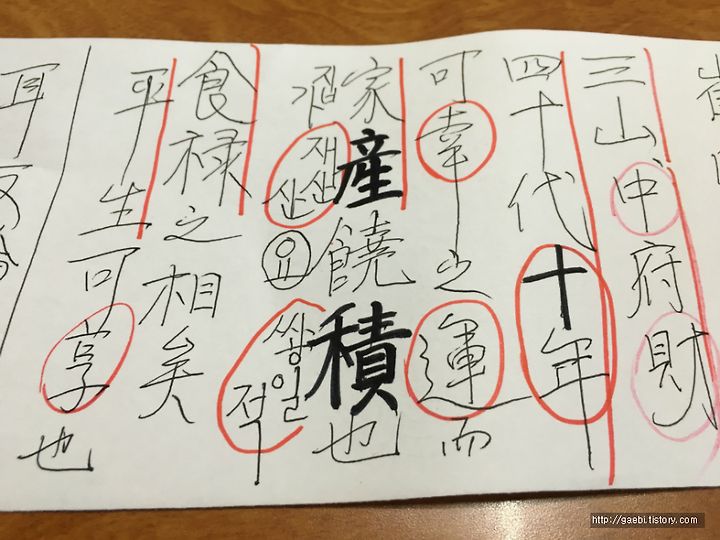 三山中府財
四十代十年
可幸之運而
家産饒積也
집 가
재산 산
요
쌓일 적
食禄之相矣
平生可享也
耳
http://gaebi.tistory.com